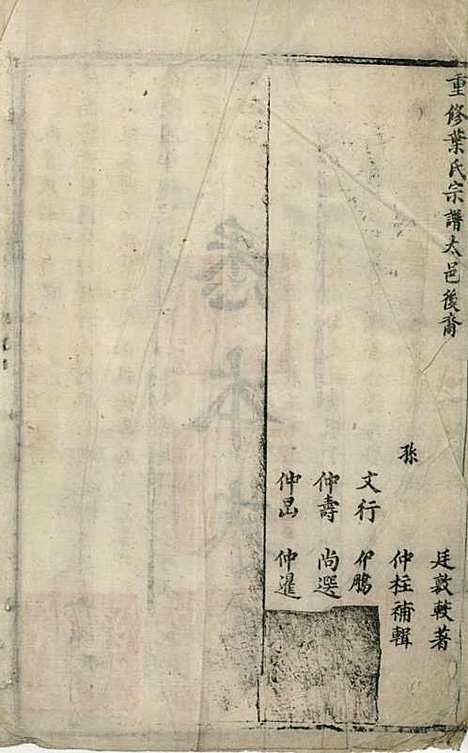 重修葉氏宗譜太邑後裔
廷敦較著
孫 仲柱補輯
文行 仲鵬
仲壽 尚選
仲昆 仲暹